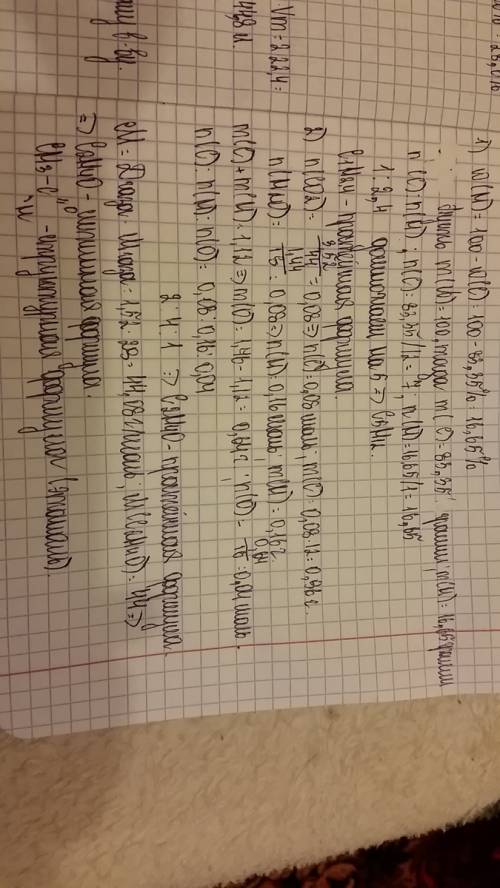 1) W(H) = 100 - W(C) = 100 - 83,35% = 16,65%
Пусть m(b) = 100, тогда m(C) = 83,35 грамм; m(H) = 16,65 грамм
n(C):n(H); n(C) = 83,35/12 = 7; n(H) = 16,65/1 = 16,65
1:2,4 домножаем на 5 => C5H12.
C5H12 - простейшая формула.
2) n(CO2) = 3,52/44 = 0,08 => n(C) = 0,08 моль; m(C) = 0,08·12 = 0,96 г.
n(H2O) = 1,44/18 = 0,08 => n(H) = 0,16 моль; m(H) = 0,16 г.
m(C) + m(H) = 1,12 => m(O) = 1,76 - 1,12 = 0,64 г; n(O) = 0,64/16 = 0,04 моль.
n(C):n(H):n(O) = 0,08:0,16:0,04
2:4:1 => C2H4O - простейшая формула.
M = Dвозд · Mвозд = 1,52·29 = 44,08 г/моль; M(C2H4O) = 44 =>
=> C2H4O - истинная формула.
O
CH3-C - структурная формула (этаналь).
H
Vm = 2·22,4 =
44,8 л.